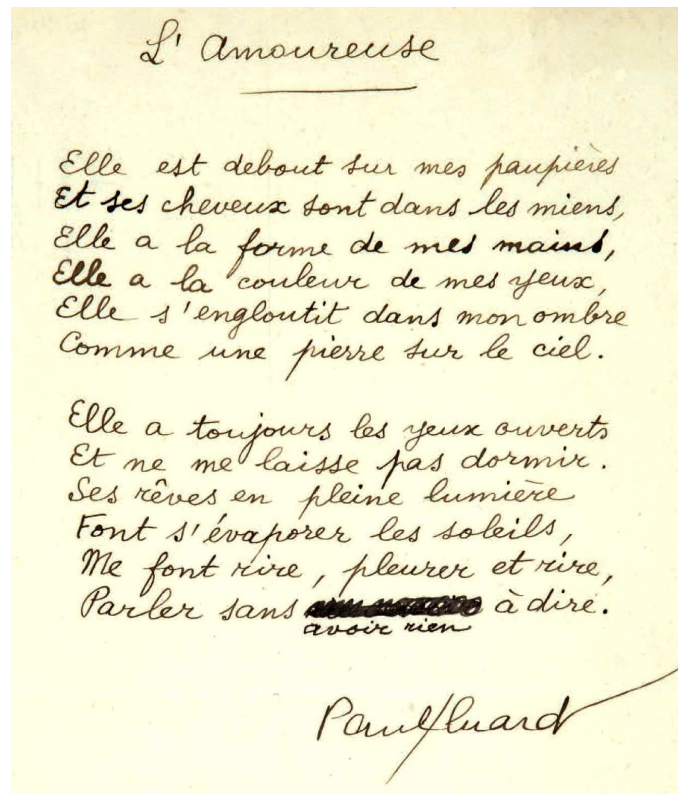 L' Amoureuse
Elle est debout sur mes paupières
Et ses cheveux sont dans les miens,
Elle a la forme de mes mains,
Elle a la couleur de mes yeux,
Elle s'engloutit dans mon ombre
Comme une pierre sur le ciel.
Elle a toujours les yeux ouverts
Et ne me laisse pas dormir.
Ses rêves en pleine lumière
Font s'évaporer les soleils,
Me font rire, pleurer et rire,
Parler sans à dire.
avoir rien
Paul Eluard